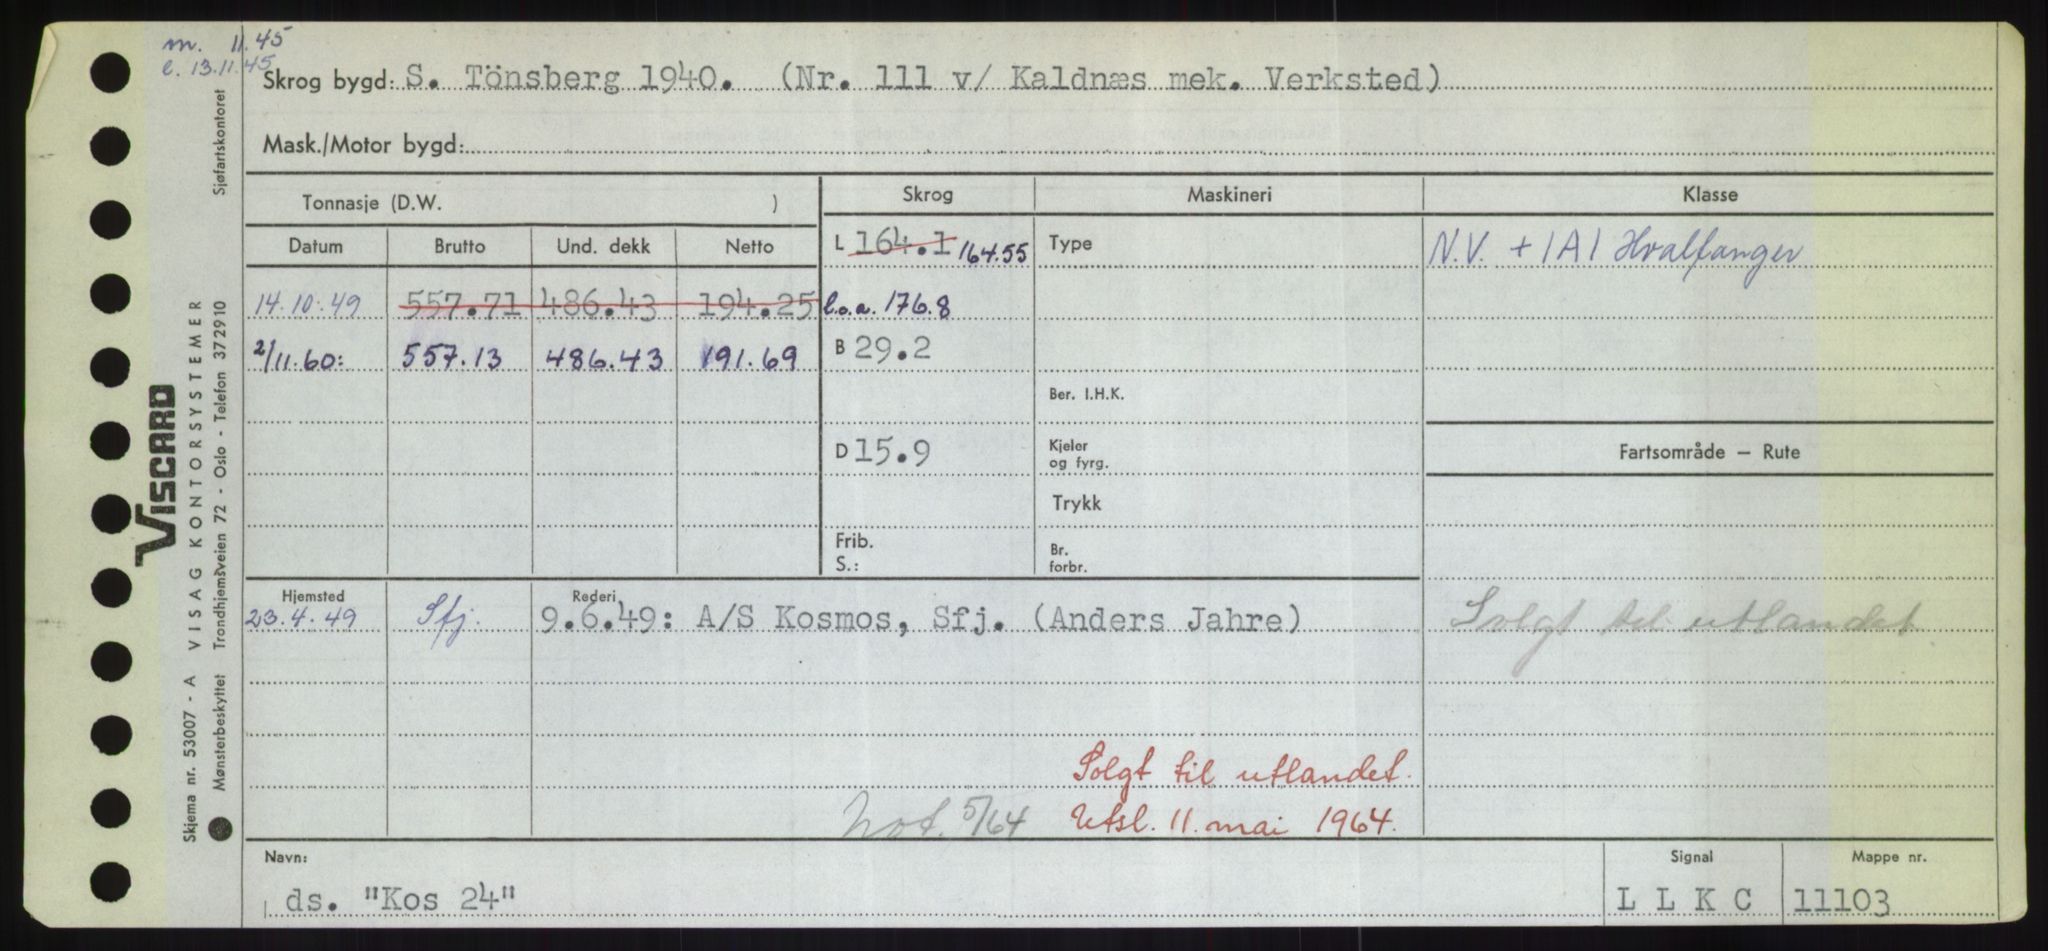 m. 11.45
e. 13.11.45
Skrog bygd: S. Tönsberg 1940. (Nr. 111 v/ Kaldnæs mek. Verksted)
Mask./Motor bygd:
Tonnasje (D.W. )
Skrog
Maskineri
Klasse
Datum Brutto Und. dekk Netto
L 164.1 164.55
Type
N.V. + 1A1 Hvalfanger
14.10.49 557.71 486.43 194.25
l.o.a. 176.8
2/11.60: 557.13 486.43 191.69
B 29.2
Ber. I.H.K.
D 15.9
Kjeler
og fyrg.
Fartsområde — Rute
Trykk
Frib.
S.:
Br.
forbr.
Hjemsted
Rederi
23.4.49 Sfj. 9.6.49: A/S Kosmos, Sfj. (Anders Jahre)
Solgt til utlandet
Solgt til utlandet.
Not. 5/64 Utsl. 11. mai 1964.
Navn:
Signal
Mappe nr.
ds. "Kos 24"
L L K C
11103
Skjema nr. 53007 - A VISAG KONTORSYSTEMER
Mønsterbeskyttet Trondhjemsveien 72 - Oslo - Telefon 372910 Sjøfartskontoret
VISCARD